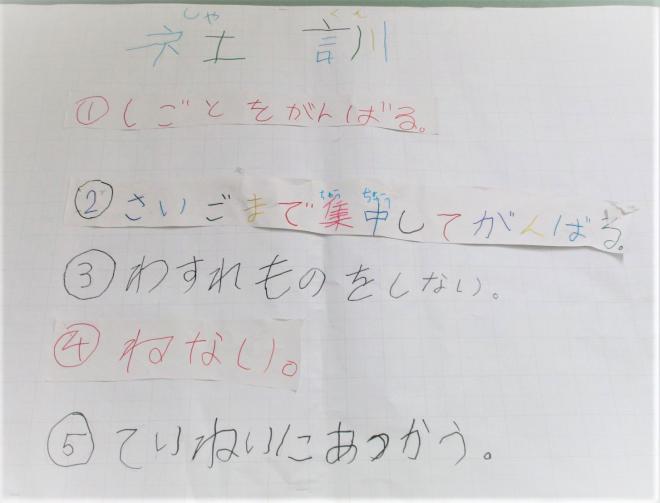 しゃ くん
社 訓
①しごとをがんばる。
しゅう ちゅう
②さいごまで集中してがんばる。
③わすれものをしない。
④ねない。
⑤ていねいにあつかう。